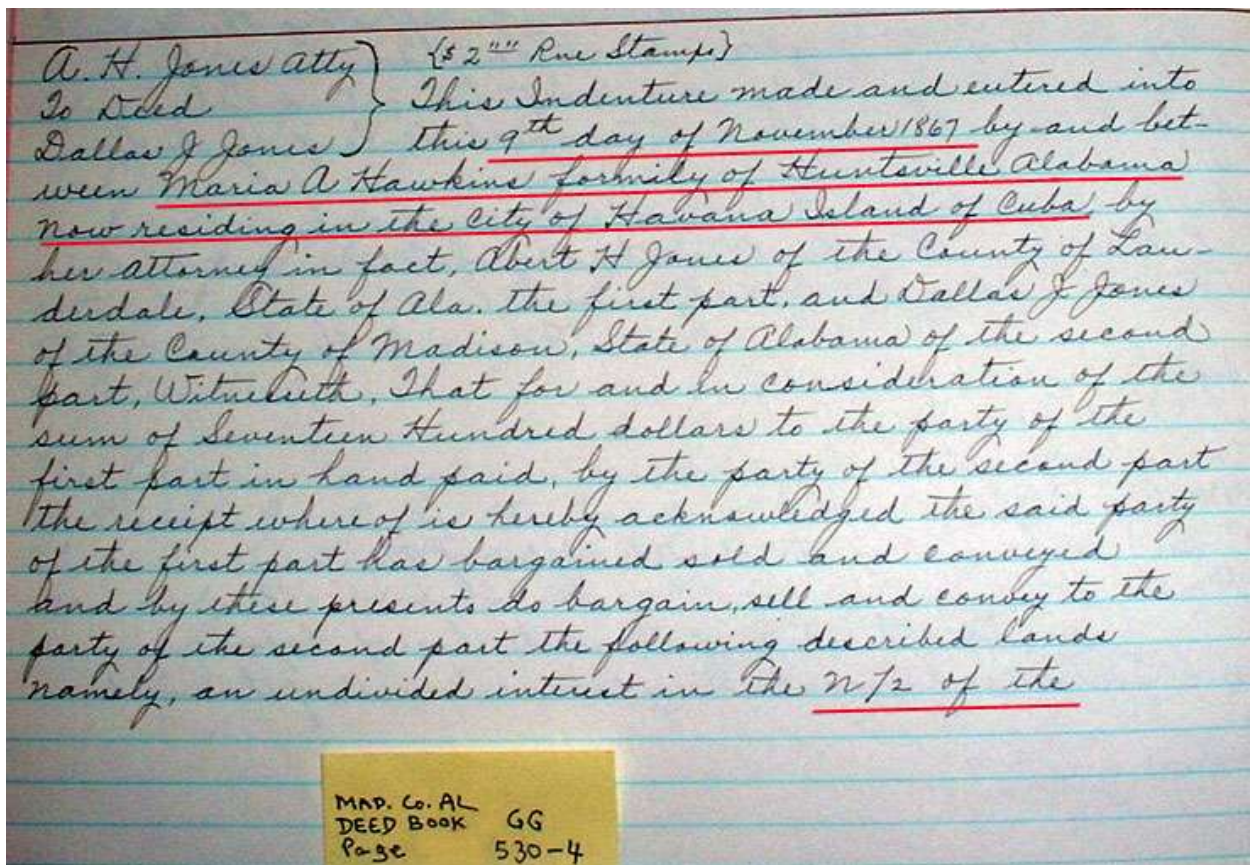 A. H. Jones Atty } {$2"" Rne Stamps}
To Deed } This Indenture made and entered into
Dallas J Jones } this 9th day of November 1867 by and bet-
ween Maria A Hawkins formily of Huntsville Alabama
now residing in the City of Havana Island of Cuba by
her attorney in fact, Abert H Jones of the County of Lau-
derdale, State of Ala. the first part, and Dallas J Jones
of the County of Madison, State of Alabama of the second
part, Witnesseth, That for and in consideration of the
sum of Seventeen Hundred dollars to the party of the
first part in hand paid, by the party of the second part
the receipt where of is hereby acknowledged the said party
of the first part has bargained sold and conveyed
and by these presents do bargain, sell and convey to the
party of the second part the following described lands
namely, an undivided interest in the N/2 of the
MAD. Co. AL
DEED BOOK GG
Page 530-4